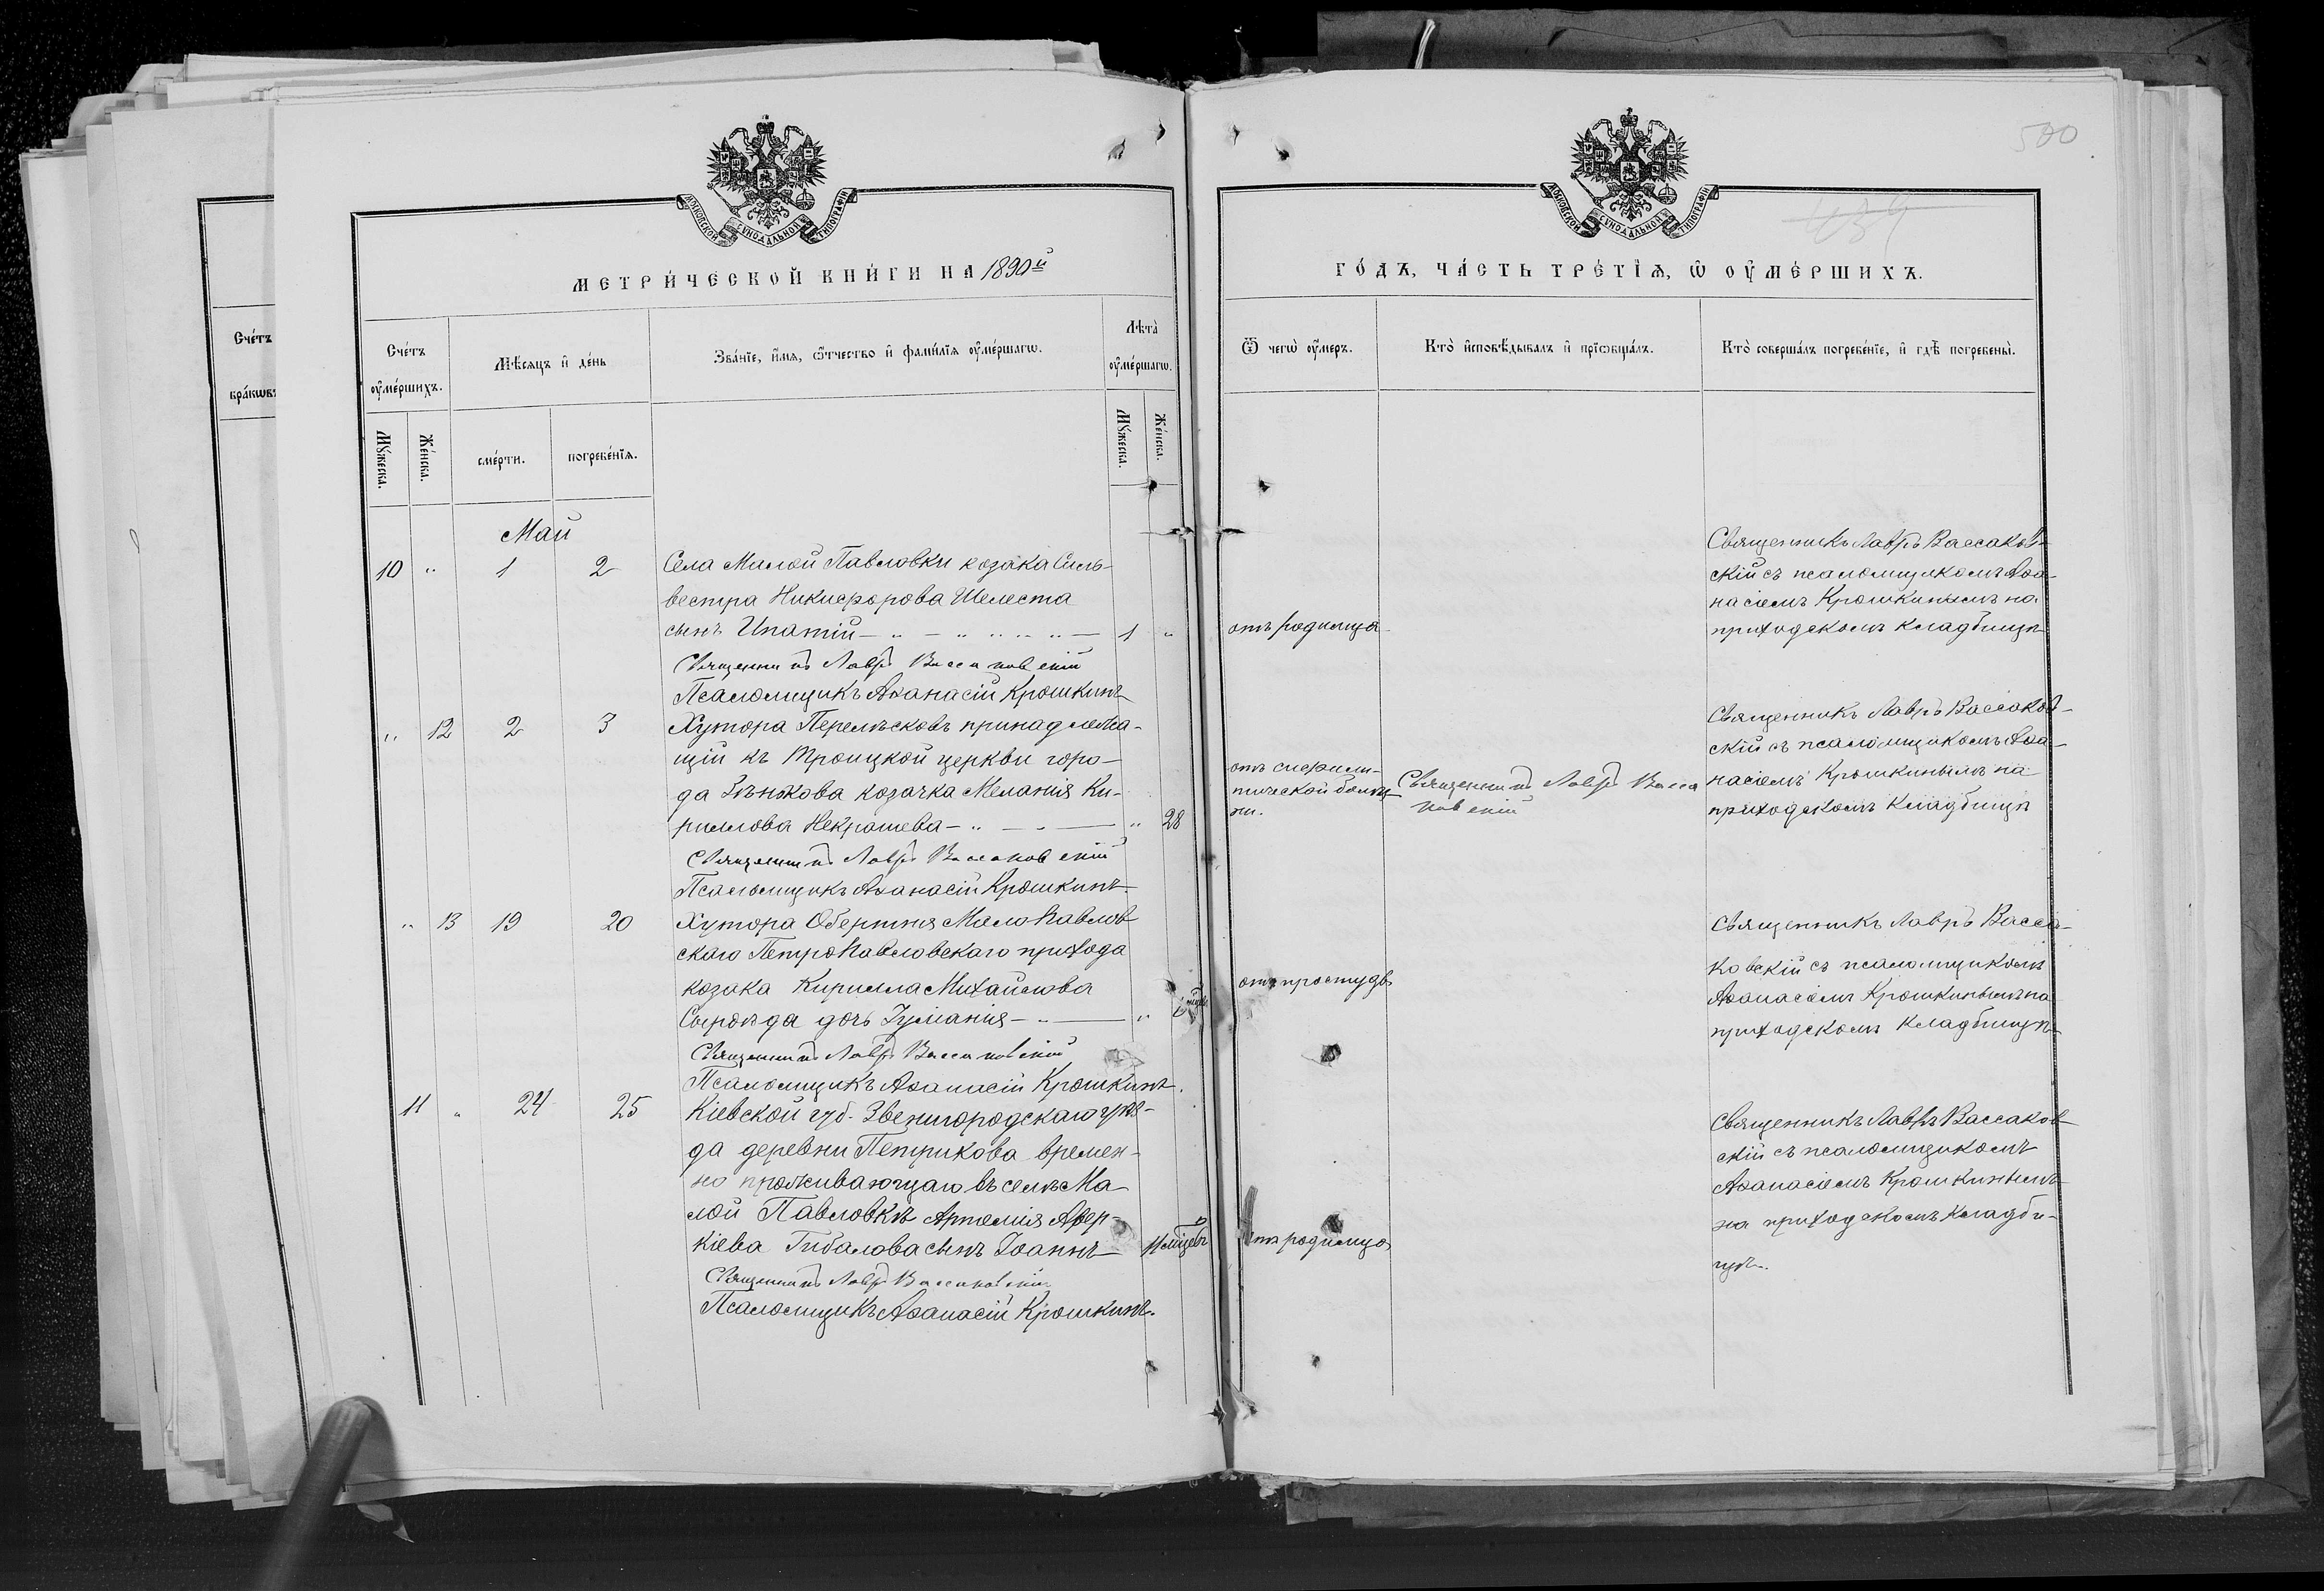 МОСКОВСКОЙ СУНОДАЛЬНОЙ ТИПОГРАФІИ
МЕТРИ́ЧЕСКОЙ КНИ́ГИ НА 1890й
Сче́тъ
бра́кωвъ
Сче́тъ
оумéршихъ.
Му́жеска.
Же́нска.
Мѣ́сяцъ и де́нь
сме́рти.
погребе́нїя.
Зва́нїе, и́мя, ѿтчество и фами́лїя оумéршагω.
Лѣта̀
оумéршагω.
Му́жеска.
Же́нска.
Май
10 " 1 2 Села Малой Павловки козака Силь-
вестра Никифорова Шелеста
сынъ Ипатій — " — " " " " — 1 "
Священникъ Лавръ Вассаковскій
Псаломщикъ Аѳанасій Крошкинъ
" 12 2 3 Хутора Перелѣсковъ принадлежа-
щій къ Троицкой церкви горо-
да Зѣнькова козачка Меланія Ки-
риллова Некрашева — " — " — " 28
Священникъ Лавръ Вассаковскій
Псаломщикъ Аѳанасій Крошкинъ.
" 13 19 20 Хутора Обертня Мало Павлов
скаго Петропавловскаго прихода
козака Кирилла Михайлова
Сыроѣда дочь Іуліанія — " — "
Священникъ Лавръ Вассаковскій
Псаломщикъ Аѳанасій Крошкинъ.
11 " 24 25 Кіевской губ. Звенигородскаго уѣз-
да деревни Петрикова времен-
но проживающаго въ селѣ Ма-
лой Павловкѣ Артемія Авер-
кіева Гибалова сынъ Іоаннъ — 11 міцевъ
Священникъ Лавръ Вассаковскій
Псаломщикъ Аѳанасій Крошкинъ.
500
МОСКОВСКОЙ СУНОДАЛЬНОЙ ТИПОГРАФІИ
ГО́ДЪ, ЧА́СТЬ ТРЕ́ТЇЯ, Ѡ ОУМЕ́РШИХЪ.
Ѿ чегὼ оу́меръ.
Кто̀ и́сповѣ́дывалъ и прїωбща́лъ.
Кто̀ соверша́лъ погребе́нїе, и гдѣ̀ погребены̀.
Священникъ Лавръ Вассаков-
скій съ псаломщикомъ Аѳа-
насіемъ Крошкинымъ на
приходскомъ кладбищѣ
отъ родимца
Священникъ Лавръ Вассаков-
скій съ псаломщикомъ Аѳа-
насіемъ Крошкинымъ на
приходскомъ кладбищѣ
отъ сифили-
тической болѣз
ни.
Священникъ Лавръ Васса
ковскій
Священникъ Лавръ Васса-
ковскій съ псаломщикомъ
Аѳанасіемъ Крошкинымъ на
приходскомъ кладбищѣ
отъ простуды
Священникъ Лавръ Вассаков
скій съ псаломщикомъ
Аѳанасіемъ Крошкинымъ
на приходскомъ кладби-
щѣ.
отъ родимца